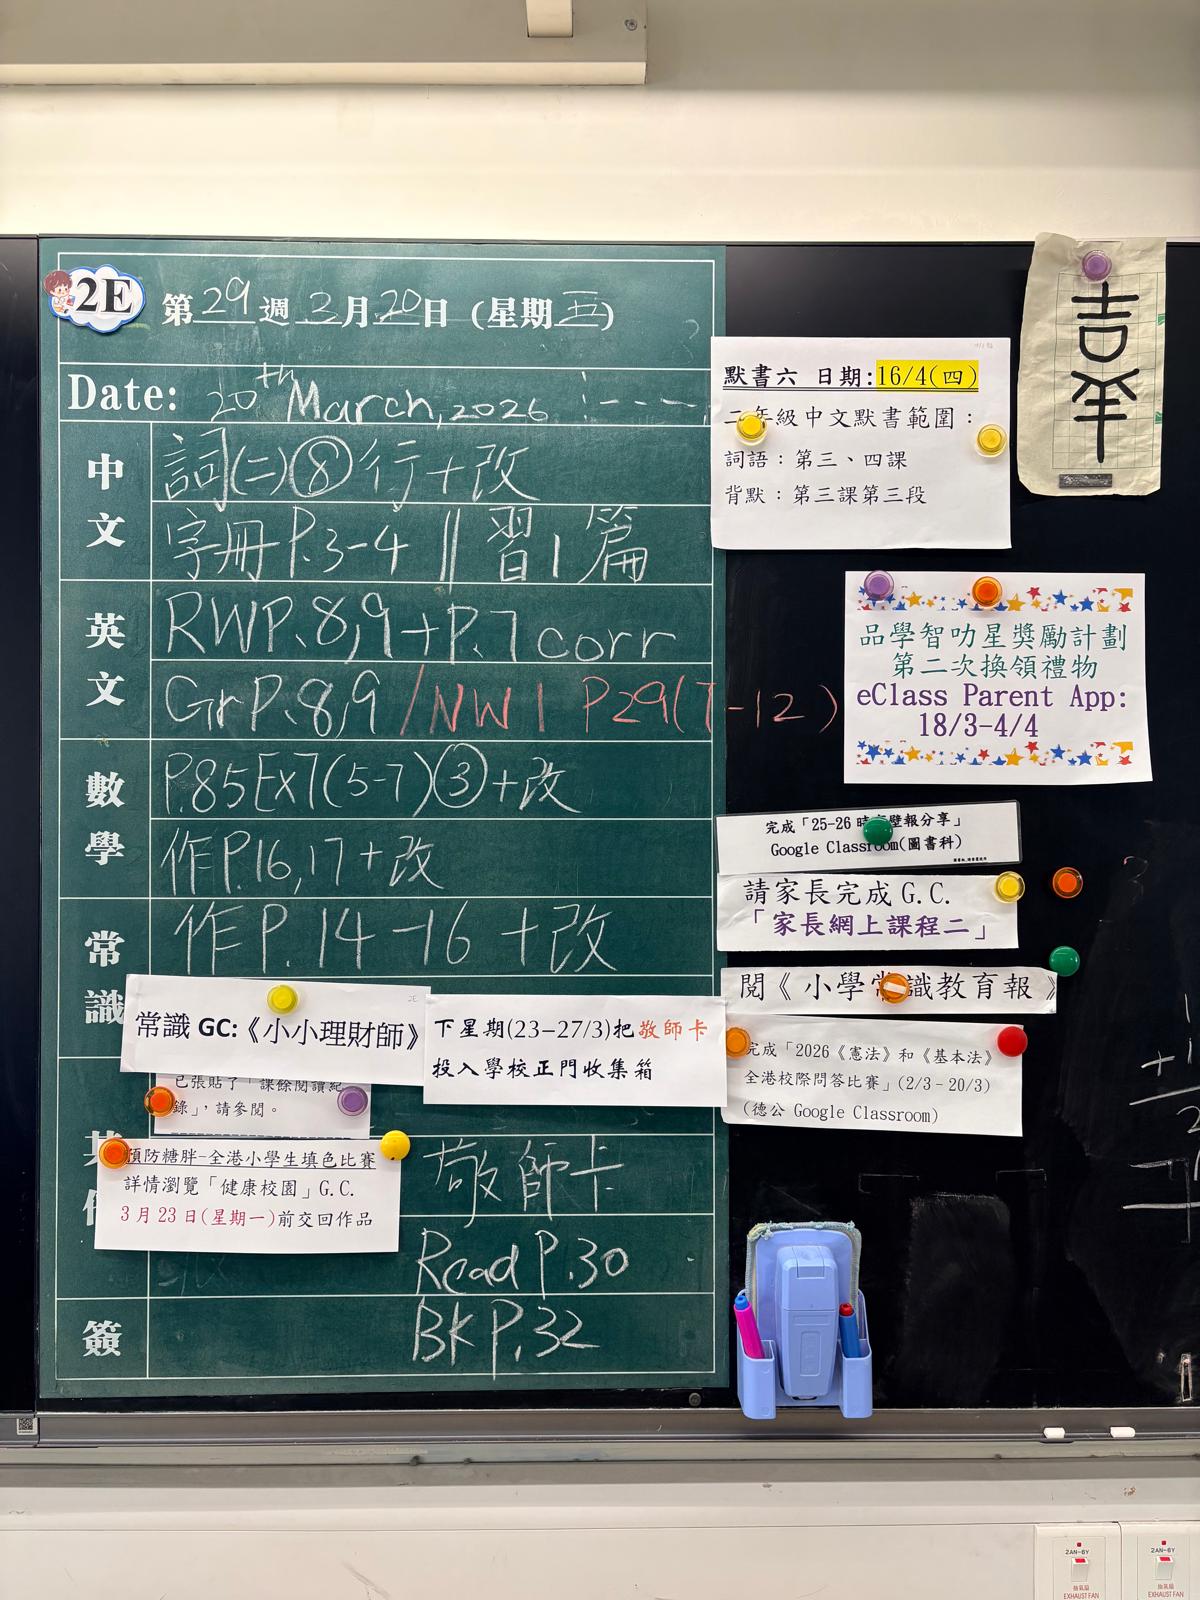 2E
第29週 3月20日 (星期五)
Date: 20th March, 2026
中文
詞(二)⑧行+改
字冊P.3-4 || 習1篇
英文
RWP.8,9+P.7 corr
GrP.8,9 /NW1 P29(7-12)
數學
P.85Ex7(5-7)③+改
作P.16,17+改
常識
作P.14-16 +改
2E
常識 GC:《小小理財師》
下星期(23-27/3)把敬師卡
投入學校正門收集箱
已張貼了「課餘閱讀紀
錄」,請參閱。
預防糖胖-全港小學生填色比賽
詳情瀏覽「健康校園」G.C.
3月23日(星期一)前交回作品
敬師卡
Read P.30
簽
BK P.32
默書六 日期:16/4(四)
二年級中文默書範圍:
詞語:第三、四課
背默:第三課第三段
吉羊
品學智叻星獎勵計劃
第二次換領禮物
eClass Parent App:
18/3-4/4
完成「25-26 時 壁報分享」
Google Classroom(圖書科)
請家長完成 G.C.
「家長網上課程二」
閱《小學常識教育報》
完成「2026《憲法》和《基本法》
全港校際問答比賽」(2/3-20/3)
(德公 Google Classroom)
2AN-6Y
抽氣扇
EXHAUST FAN
2AN-6Y
抽氣扇
EXHAUST FAN